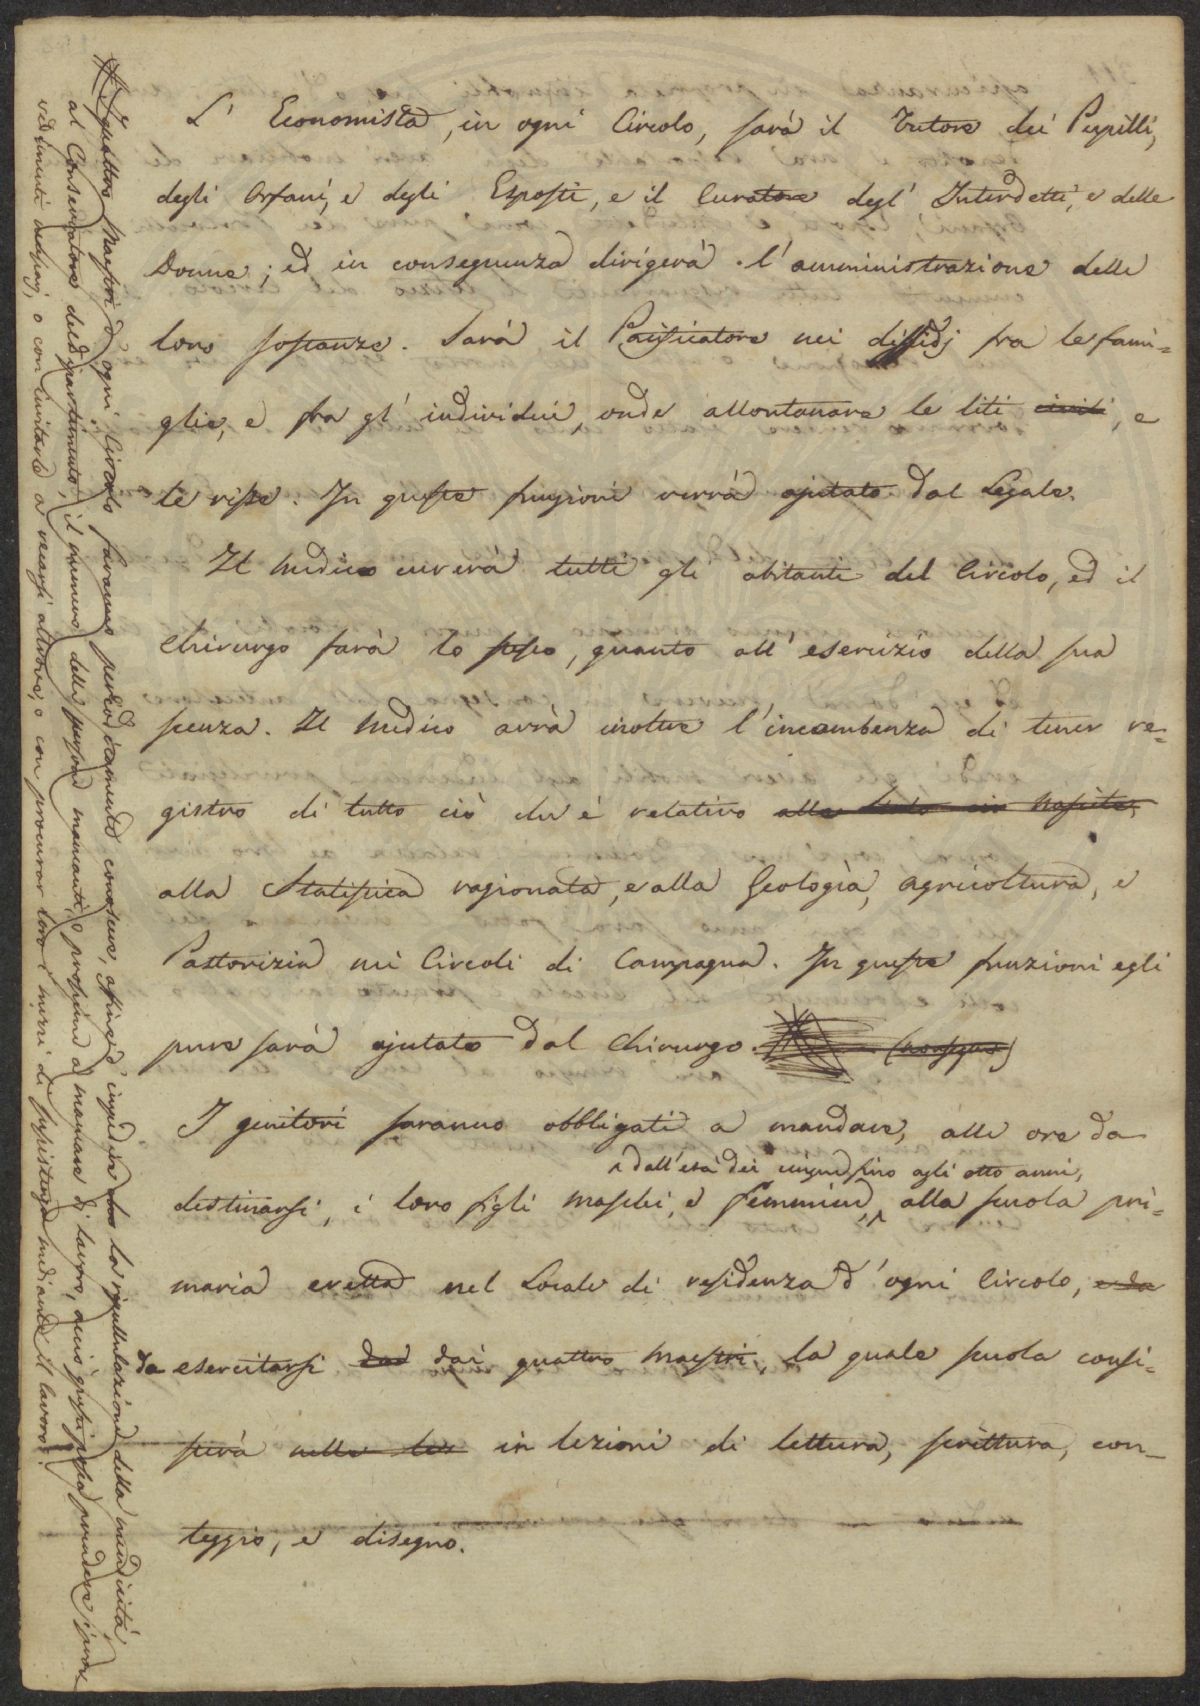 L' Economista, in ogni Circolo, sarà il Tutore dei Pupilli,
degli Orfani, e degli Esposti, e il Curatore degl' Interdetti, e delle
Donne; ed in conseguenza dirigerà l'amministrazione delle
loro sostanze. Sarà il Pacificatore nei dissidj fra le fami=
glie, e fra gl' individui, onde allontanare le liti civili, e
le risse. In queste funzioni verrà ajutato dal Legale.
Il Medico curerà tutti gli abitanti del Circolo, ed il
Chirurgo farà lo stesso, quanto all' esercizio della sua
scienza. Il Medico avrà inoltre l'incombenza di tener re=
gistro di tutto ciò che è relativo alle Nascite,
alla Statistica ragionata, e alla Geologia, Agricoltura, e
Pastorizia nei Circoli di Campagna. In queste funzioni egli
pure sarà ajutato dal Chirurgo.
I genitori saranno obbligati a mandare, alle ore da
dall'età dei cinque fino agli otto anni,
destinarsi, i loro figli maschi, e femmine, alla scuola pri=
maria eretta nel Locale di residenza d'ogni Circolo, e da
da esercitarsi dai quattro Maestri, la quale scuola consi=
sterà nelle le in lezioni di lettura, scrittura, con=
teggio, e disegno.
I quattro Maestri d'ogni Circolo faranno periodicamente conoscere, affine d'impedire la ripullulazione della mendicità
al Conservatore del dipartimento, il numero delle persone mancanti, o prossime a mancare di lavoro, acciò questi possa prendere i prov
vedimenti necessarj, o con invitarle a recarsi altrove, o con procurar loro i mezzi di sussistenza mediante il lavoro.